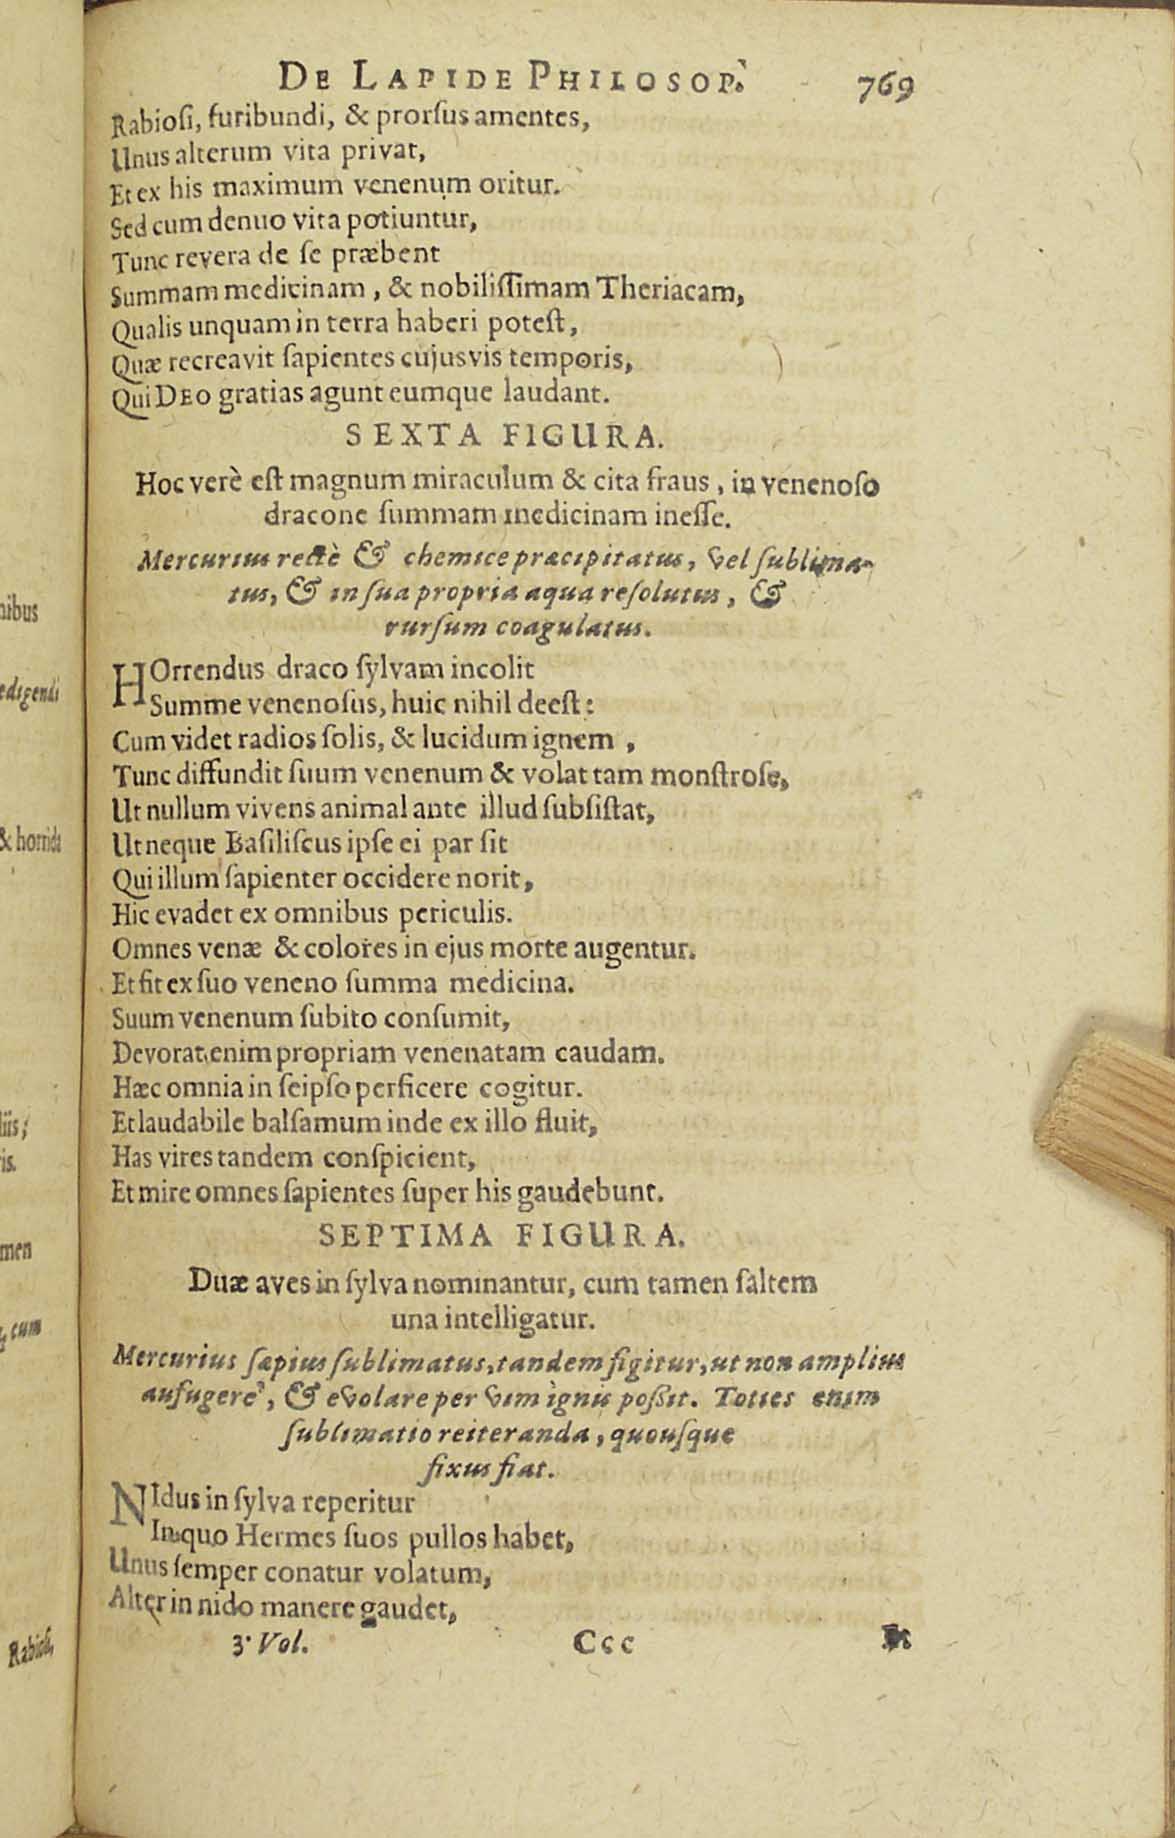 DE LAPIDE PHILOSOP. 769
Rabioſi, furibundi, & prorſus amentes,
Unus alterum vita privat,
Et ex his maximum venenum oritur.
Sed cum denuo vita potiuntur,
Tunc revera de ſe præbent
Summam medicinam, & nobiliſſimam Theriacam,
Qualis unquam in terra haberi poteſt,
Quæ recreavit ſapientes cujusvis temporis,
Qui DEO gratias agunt eumque laudant.
SEXTA FIGURA.
Hoc verè eſt magnum miraculum & cita fraus, in venenoſo
dracone ſummam medicinam ineſſe.
Mercurius rectè & chemice præcipitatus, vel ſublima-
tus, & in ſua propria aqua reſolutus, &
rurſum coagulatus.
HOrrendus draco ſylvam incolit
Summe venenoſus, huic nihil deeſt:
Cum videt radios ſolis, & lucidum ignem,
Tunc diffundit ſuum venenum & volat tam monſtroſe,
Ut nullum vivens animal ante illud ſubſiſtat,
Ut neque Baſiliſcus ipſe ei par ſit
Qui illum ſapienter occidere norit,
Hic evadet ex omnibus periculis.
Omnes venæ & colores in ejus morte augentur.
Et fit ex ſuo veneno ſumma medicina.
Suum venenum ſubito conſumit,
Devorat enim propriam venenatam caudam.
Hæc omnia in ſeipſo perficere cogitur.
Et laudabile balſamum inde ex illo fluit,
Has vires tandem conſpicient,
Et mire omnes ſapientes ſuper his gaudebunt.
SEPTIMA FIGURA.
Duæ aves in ſylva nominantur, cum tamen ſaltem
una intelligatur.
Mercurius ſæpius ſublimatus, tandem figitur, ut non amplius
aufugere, & evolare per vim ignis poßit. Toties enim
ſublimatio reiteranda, quouſque
fixus fiat.
NIdus in ſylva reperitur
In quo Hermes ſuos pullos habet,
Unus ſemper conatur volatum,
Alter in nido manere gaudet,
3. Vol. Ccc
nibus
edigendi
& horrida
liis;
is.
men
cum
Rabioſi,